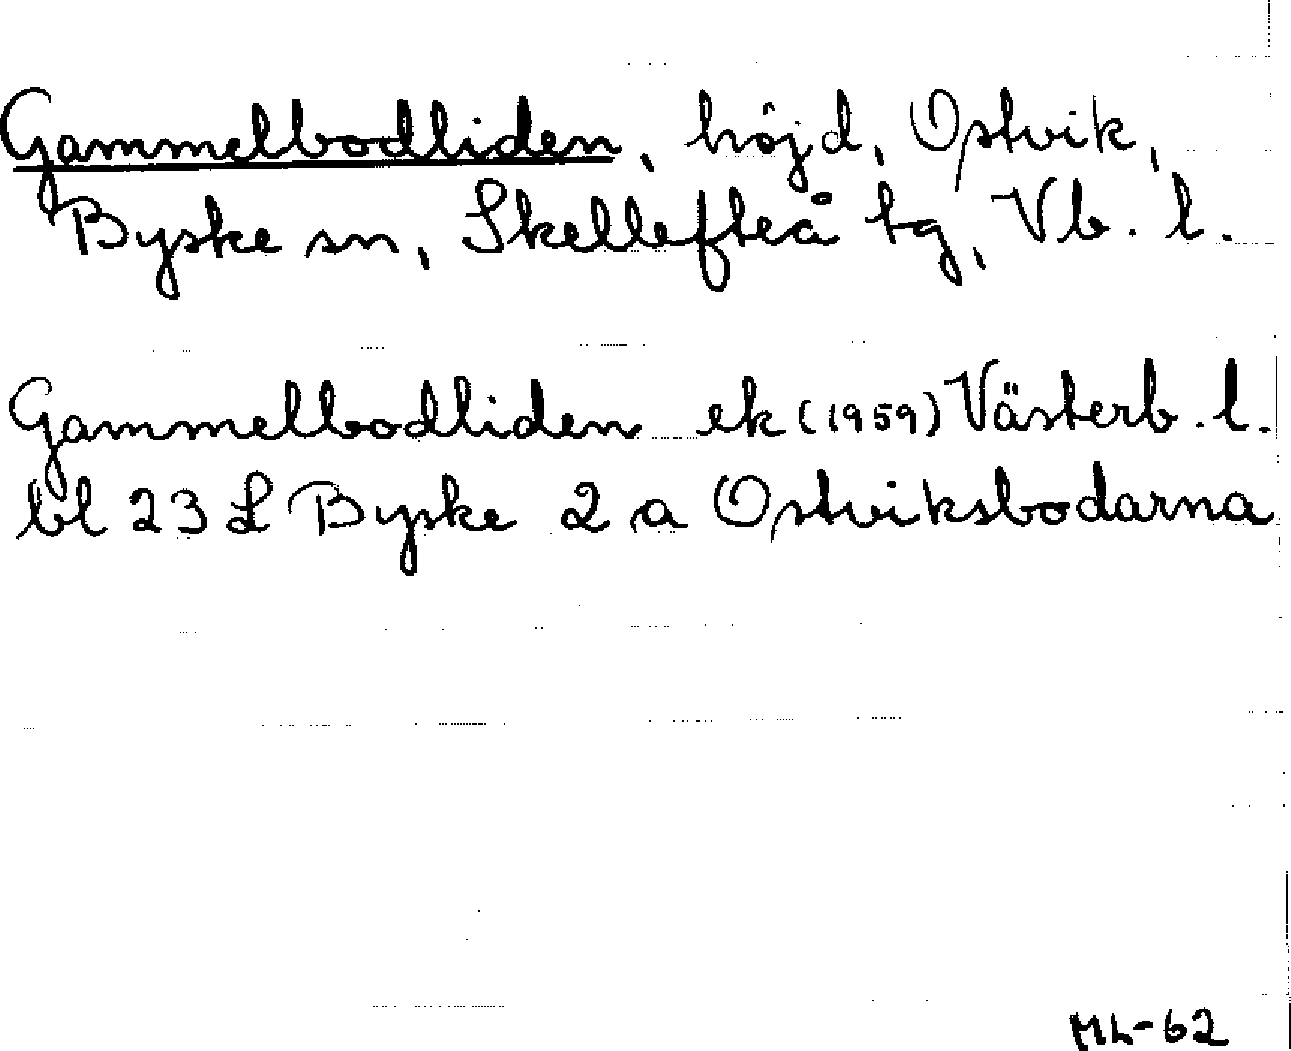 Gammelbodliden, höjd, Ostvik,
Byske sn, Skellefteå tg, Vb. l.
Gammelbodliden ek (1959) Västerb. l.
bl 23 L Byske 2 a Ostviksbodarna
ML-62